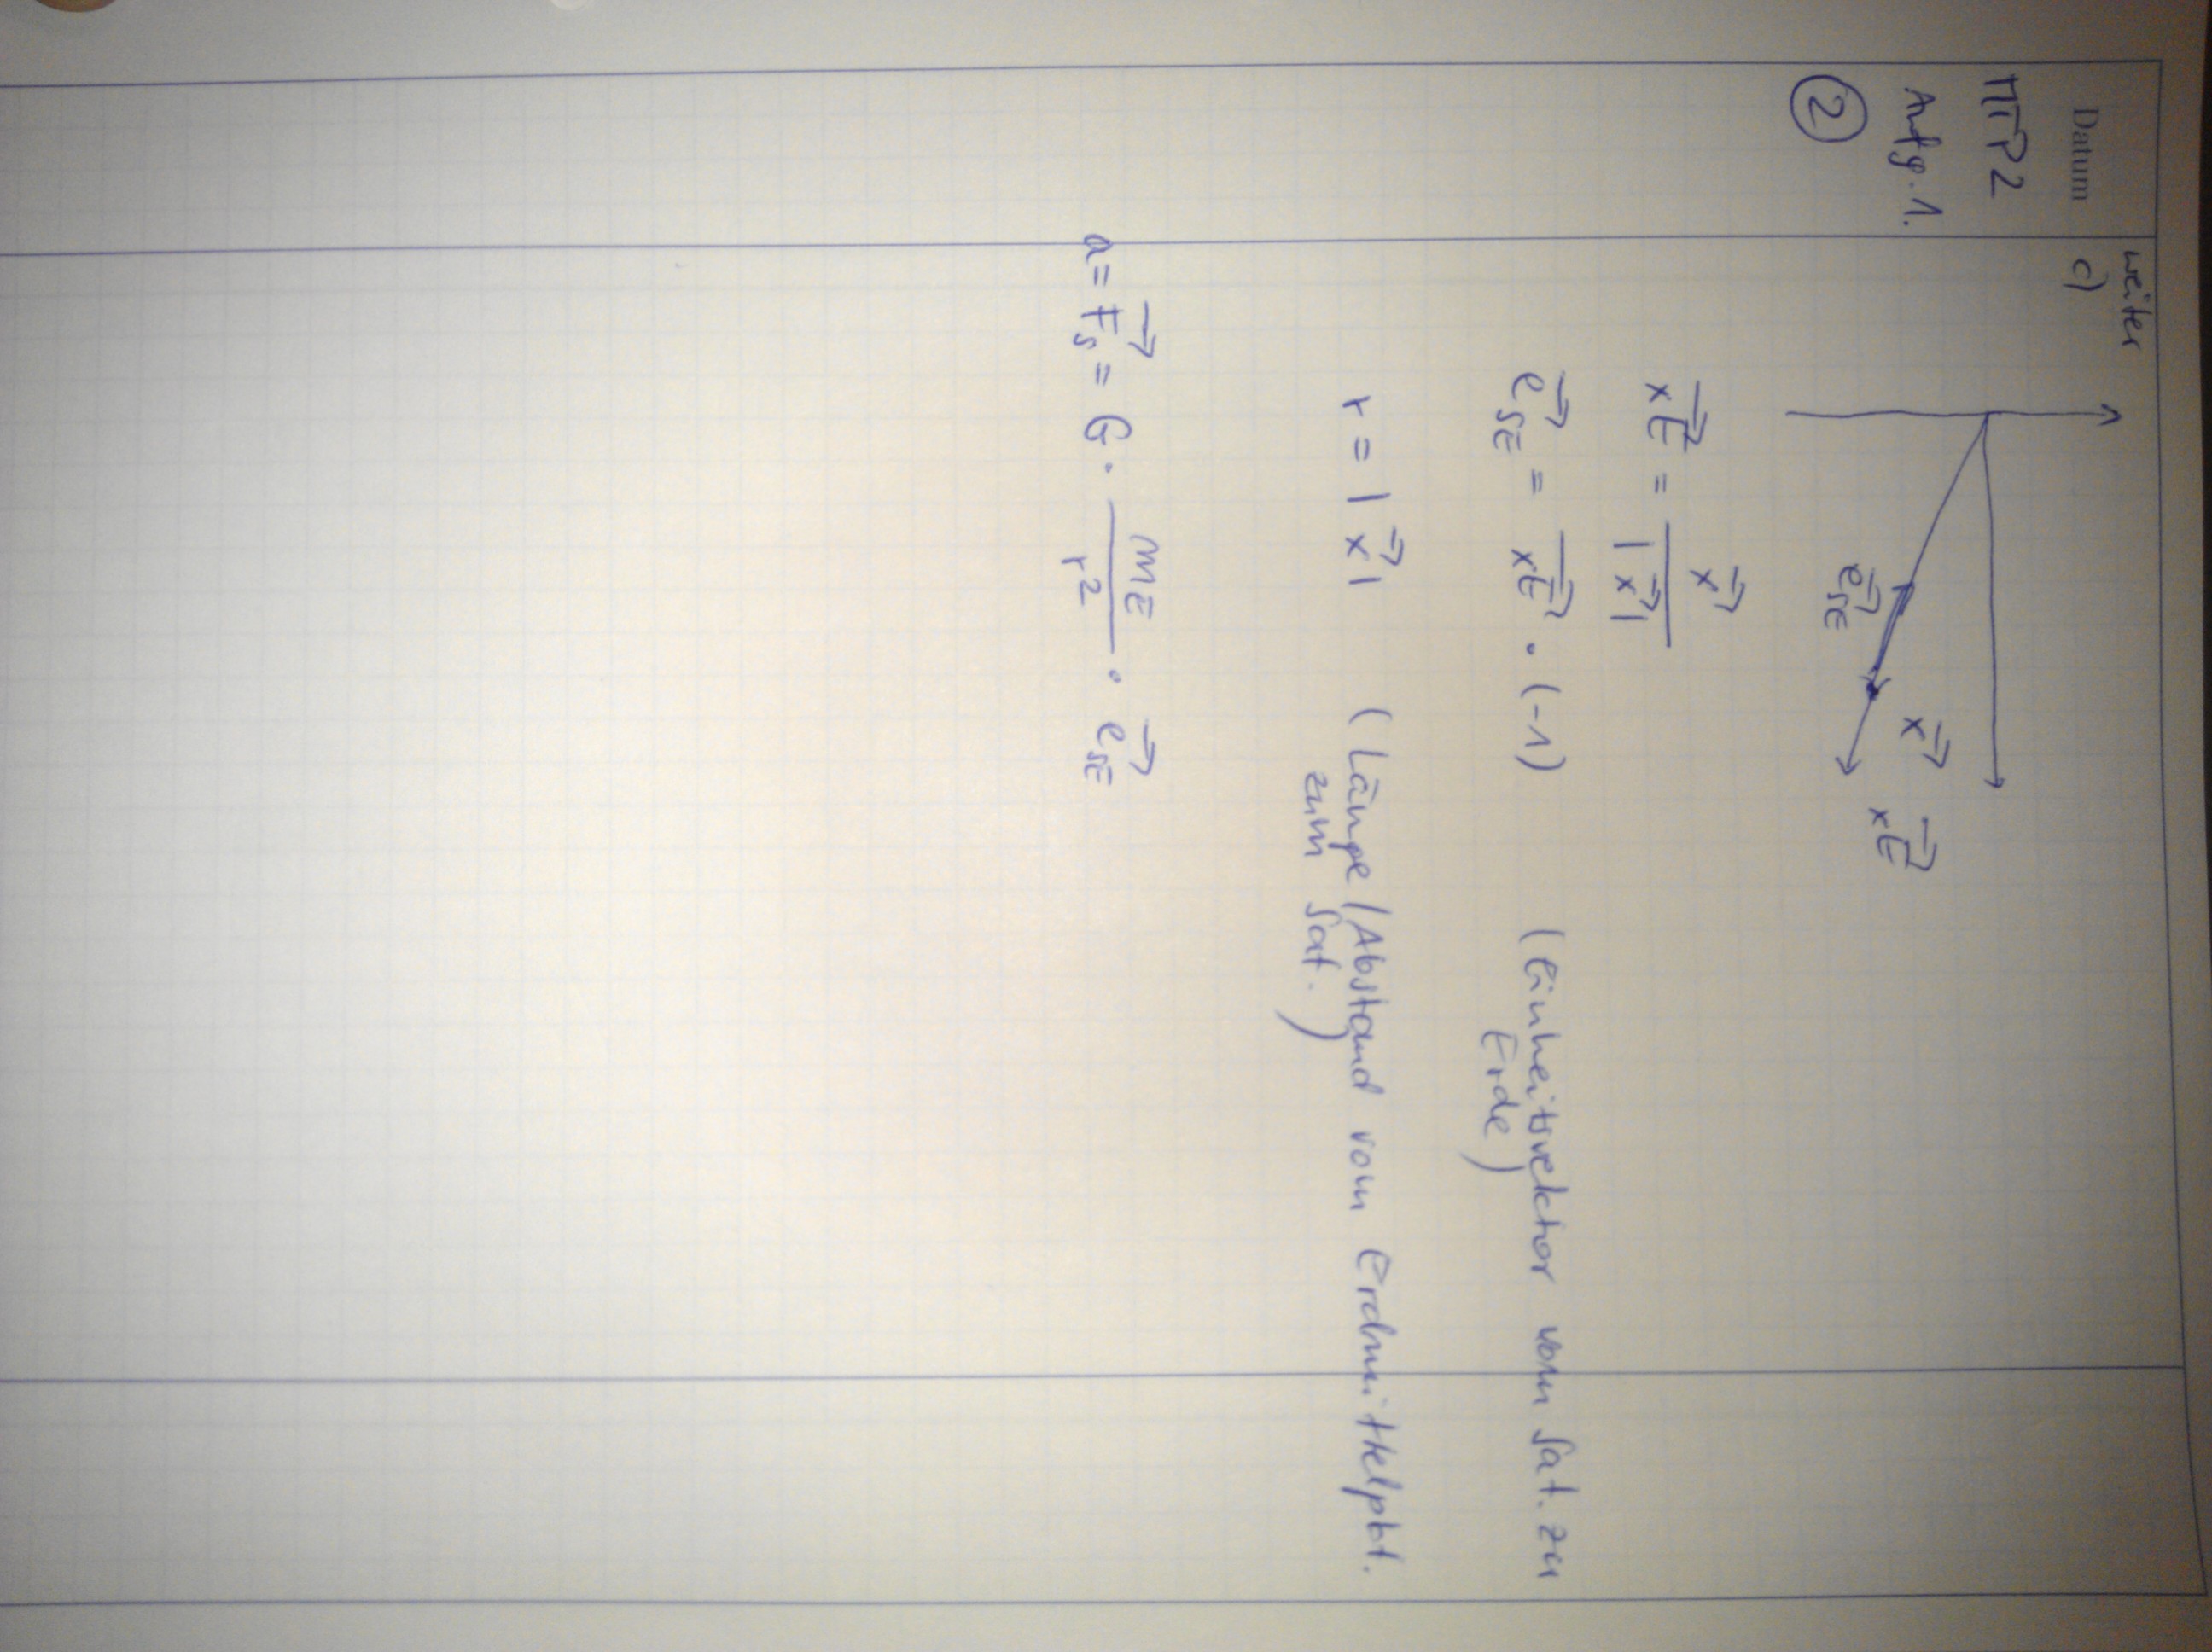 Datum
MTP2
Aufg. 1.
②
weiter
c)
x⃗
xE⃗
e⃗_SE
xE⃗ = x⃗ / |x⃗|
e⃗_SE = xE⃗ · (-1) (Einheitsvektor vom Sat. zu
Erde)
r = |x⃗| (Länge/Abstand vom Erdmittelpkt.
zum Sat.)
a = F⃗_S = G · m_E / r² · e⃗_SE